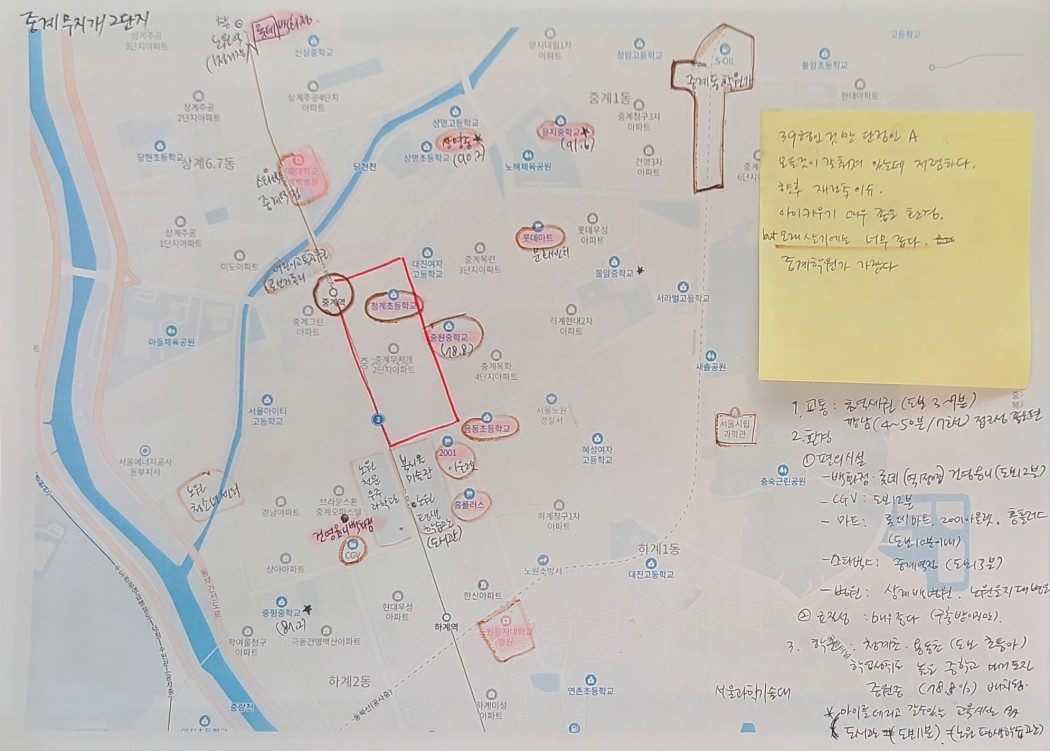 중계무지개2단지
상계주공
3단지아파트
노원역
(1정거장)
롯데백화점
신상중학교
양지대림1차
아파트
청암고등학교
S-OIL
중계동학원가
고등학교
불암초등학교
현대아파트
상계주공
2단지아파트
상계주공4단지
아파트
중계1동
중계청구3차
아파트
상명고등학교
상명중★
(90.7)
상명초등학교
을지중학교★
(91.6)
노해체육공원
건영3차
아파트
6단지아파트
당현초등학교
상계6.7동
당현천
스타벅스
중계역점
상계주공
1단지아파트
미도아파트
어린이교통공원
중계역
대진여자
고등학교
중계목련
3단지아파트
롯데마트
문화센터
롯데우성
아파트
불암중학교★
서라벌고등학교
마들체육공원
중계그린
아파트
청계초등학교
중원중학교
(78.8)
하계현대2차
아파트
중계무지개
2단지아파트
중계목화
4단지아파트
새솔공원
서울아이티
고등학교
3
용동초등학교
서울노원
경찰서
서울시립
과학관
서울에너지공사
동부지사
노원
청소년센터
노원
천문
우주
과학관
북서울
미술관
노원
평생
학습관
(도서관)
2001
아울렛
혜성여자
고등학교
충숙근린공원
홈플러스
브라운스톤
중계오피스텔
경남아파트
건영옴니백화점
CGV
하계청구1차
아파트
하계1동
상아아파트
노원소방서
대진고등학교
한신아파트
중평중학교★
(81.2)
현대우성
아파트
하계역
원을지대학교
병원
학여울청구
아파트
극동건영벽산아파트
동부간선도로
하계2동
동북선(공사중)
연촌초등학교
서울과학기술대
중랑천
하계미성
아파트
39형인것만 단점인 A
모든것이 갖춰져 있는데 저렴하다.
향후 재건축 이슈.
아이키우기 매우 좋은 환경.
but 오래 살기에는 너무 좁다.
중계학원가 가깝다
1. 교통 : 초역세권 (도보 3~7분)
강남(4~50분/7호선) 접근성 좋은편
2. 환경
① 편의시설
- 백화점 : 롯데 건영옴니(도보2분)
- CGV : 도보2분
- 마트 : 롯데마트, 2001아울렛, 홈플러스
(도보10분이내)
- 스타벅스 : 중계역점 (도보3분)
- 병원 : 상계백병원, 노원을지대병원
② 균질성 : 매우좋다
3. 학군 : 청계초, 용동초 (도보
학업성취도 높은 중학교
중원중 (78.8%) 배치됨.
★아이를 데리고 갈수있는 교육시설
도서관 도보1분) (노원평생학습관)